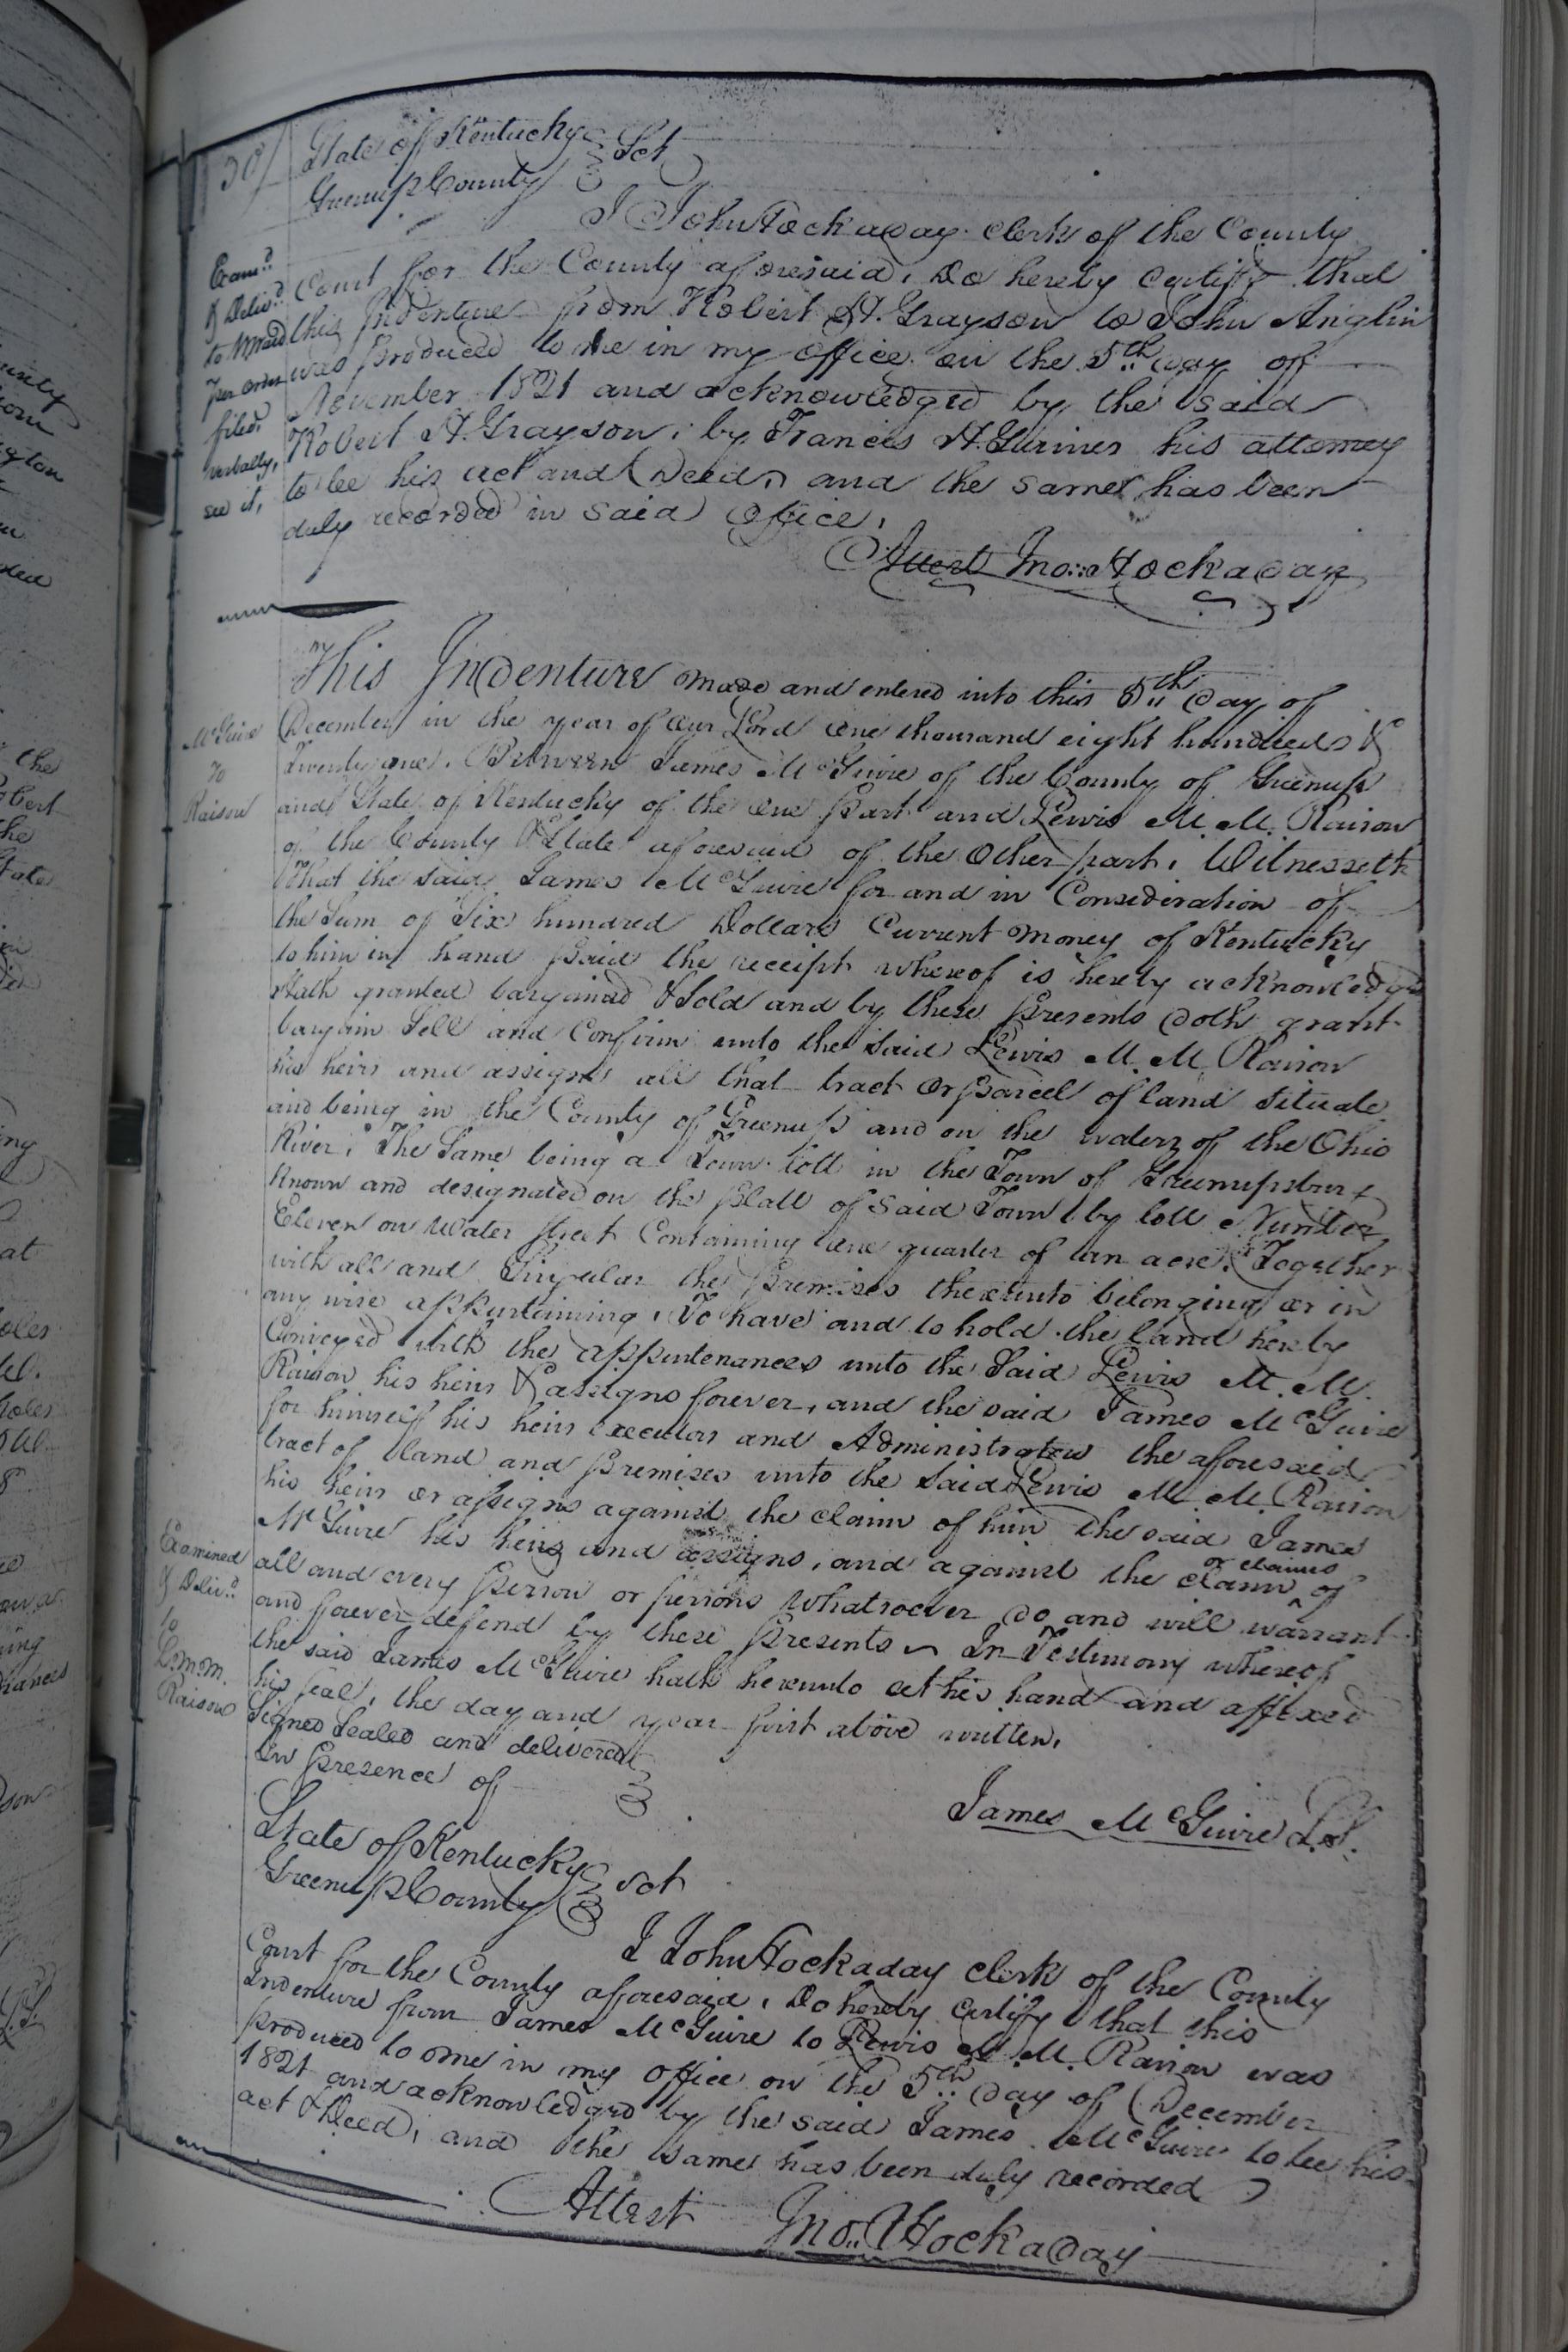 30
State of Kentucky
Greenup County Sct
I John Hockaday clerk of the County
Court for the County aforesaid, Do hereby certify that
this Indenture from Robert H. Grayson to John Anglin
was produced to me in my office on the 5th day of
November 1821 and acknowledged by the said
Robert H. Grayson, by Francis H. Gaines his attorney
to be his act and Deed, and the same has been
duly recorded in said office,
Attest Jno:: Hockaday
Exam.d
& Deliv.d
to
per order
filed
verbally,
see it,
This Indenture made and entered into this 5th Day of
December in the year of Our Lord One thousand eight hundred &
Twenty one. Between James McGuire of the County of Greenup
and State of Kentucky of the One part and Lewis M. M. Raison
of the County & State aforesaid of the Other part, Witnesseth
That the said James McGuire for and in Consideration of
the Sum of Six hundred Dollars Current Money of Kentucky
to him in hand paid the receipt whereof is hereby acknowledged
Hath granted bargained & Sold and by these Presents doth grant
bargain Sell and Confirm unto the said Lewis M. M. Raison
his heirs and assigns all that tract Or parcel of land Situate
and being in the County of Greenup and on the waters of the Ohio
River, The Same being a Town lott in the Town of Greenupsburg
Known and designated on the Platt of said Town by lott Number
Eleven on Water Street Containing One quarter of an acre, Together
with all and Singular the Premises thereunto belonging or in
any wise appurtaining, To have and to hold the land hereby
Conveyed with the appurtenances unto the Said Lewis M. M.
Raison his heirs & assigns forever, and the said James McGuire
for himself his heirs executors and Administrators the aforesaid
tract of land and premises unto the Said Lewis M. M. Raison
his heirs or assigns against the claim of him the said James
McGuire his heirs and assigns, and against the claim or claims of
all and every person or persons whatsoever do and will warrant
and forever defend by these Presents In Testimony whereof
the said James McGuire hath hereunto set his hand and affixed
his seal, the day and year first above written.
Signed Sealed and delivered
In Presence of
James McGuire L.S.
McGuire
To
Raison
Examined
& Deliv.d
to
L. M. M.
Raison
State of Kentucky
Greenup County Sct
I John Hockaday clerk of the County
Court for the County aforesaid, Do hereby Certify that this
Indenture from James McGuire to Lewis M. M. Raison was
produced to me in my office on the 5th day of December
1821 and acknowledged by the said James McGuire to be his
act & Deed, and the same has been duly recorded
Attest Jno:: Hockaday